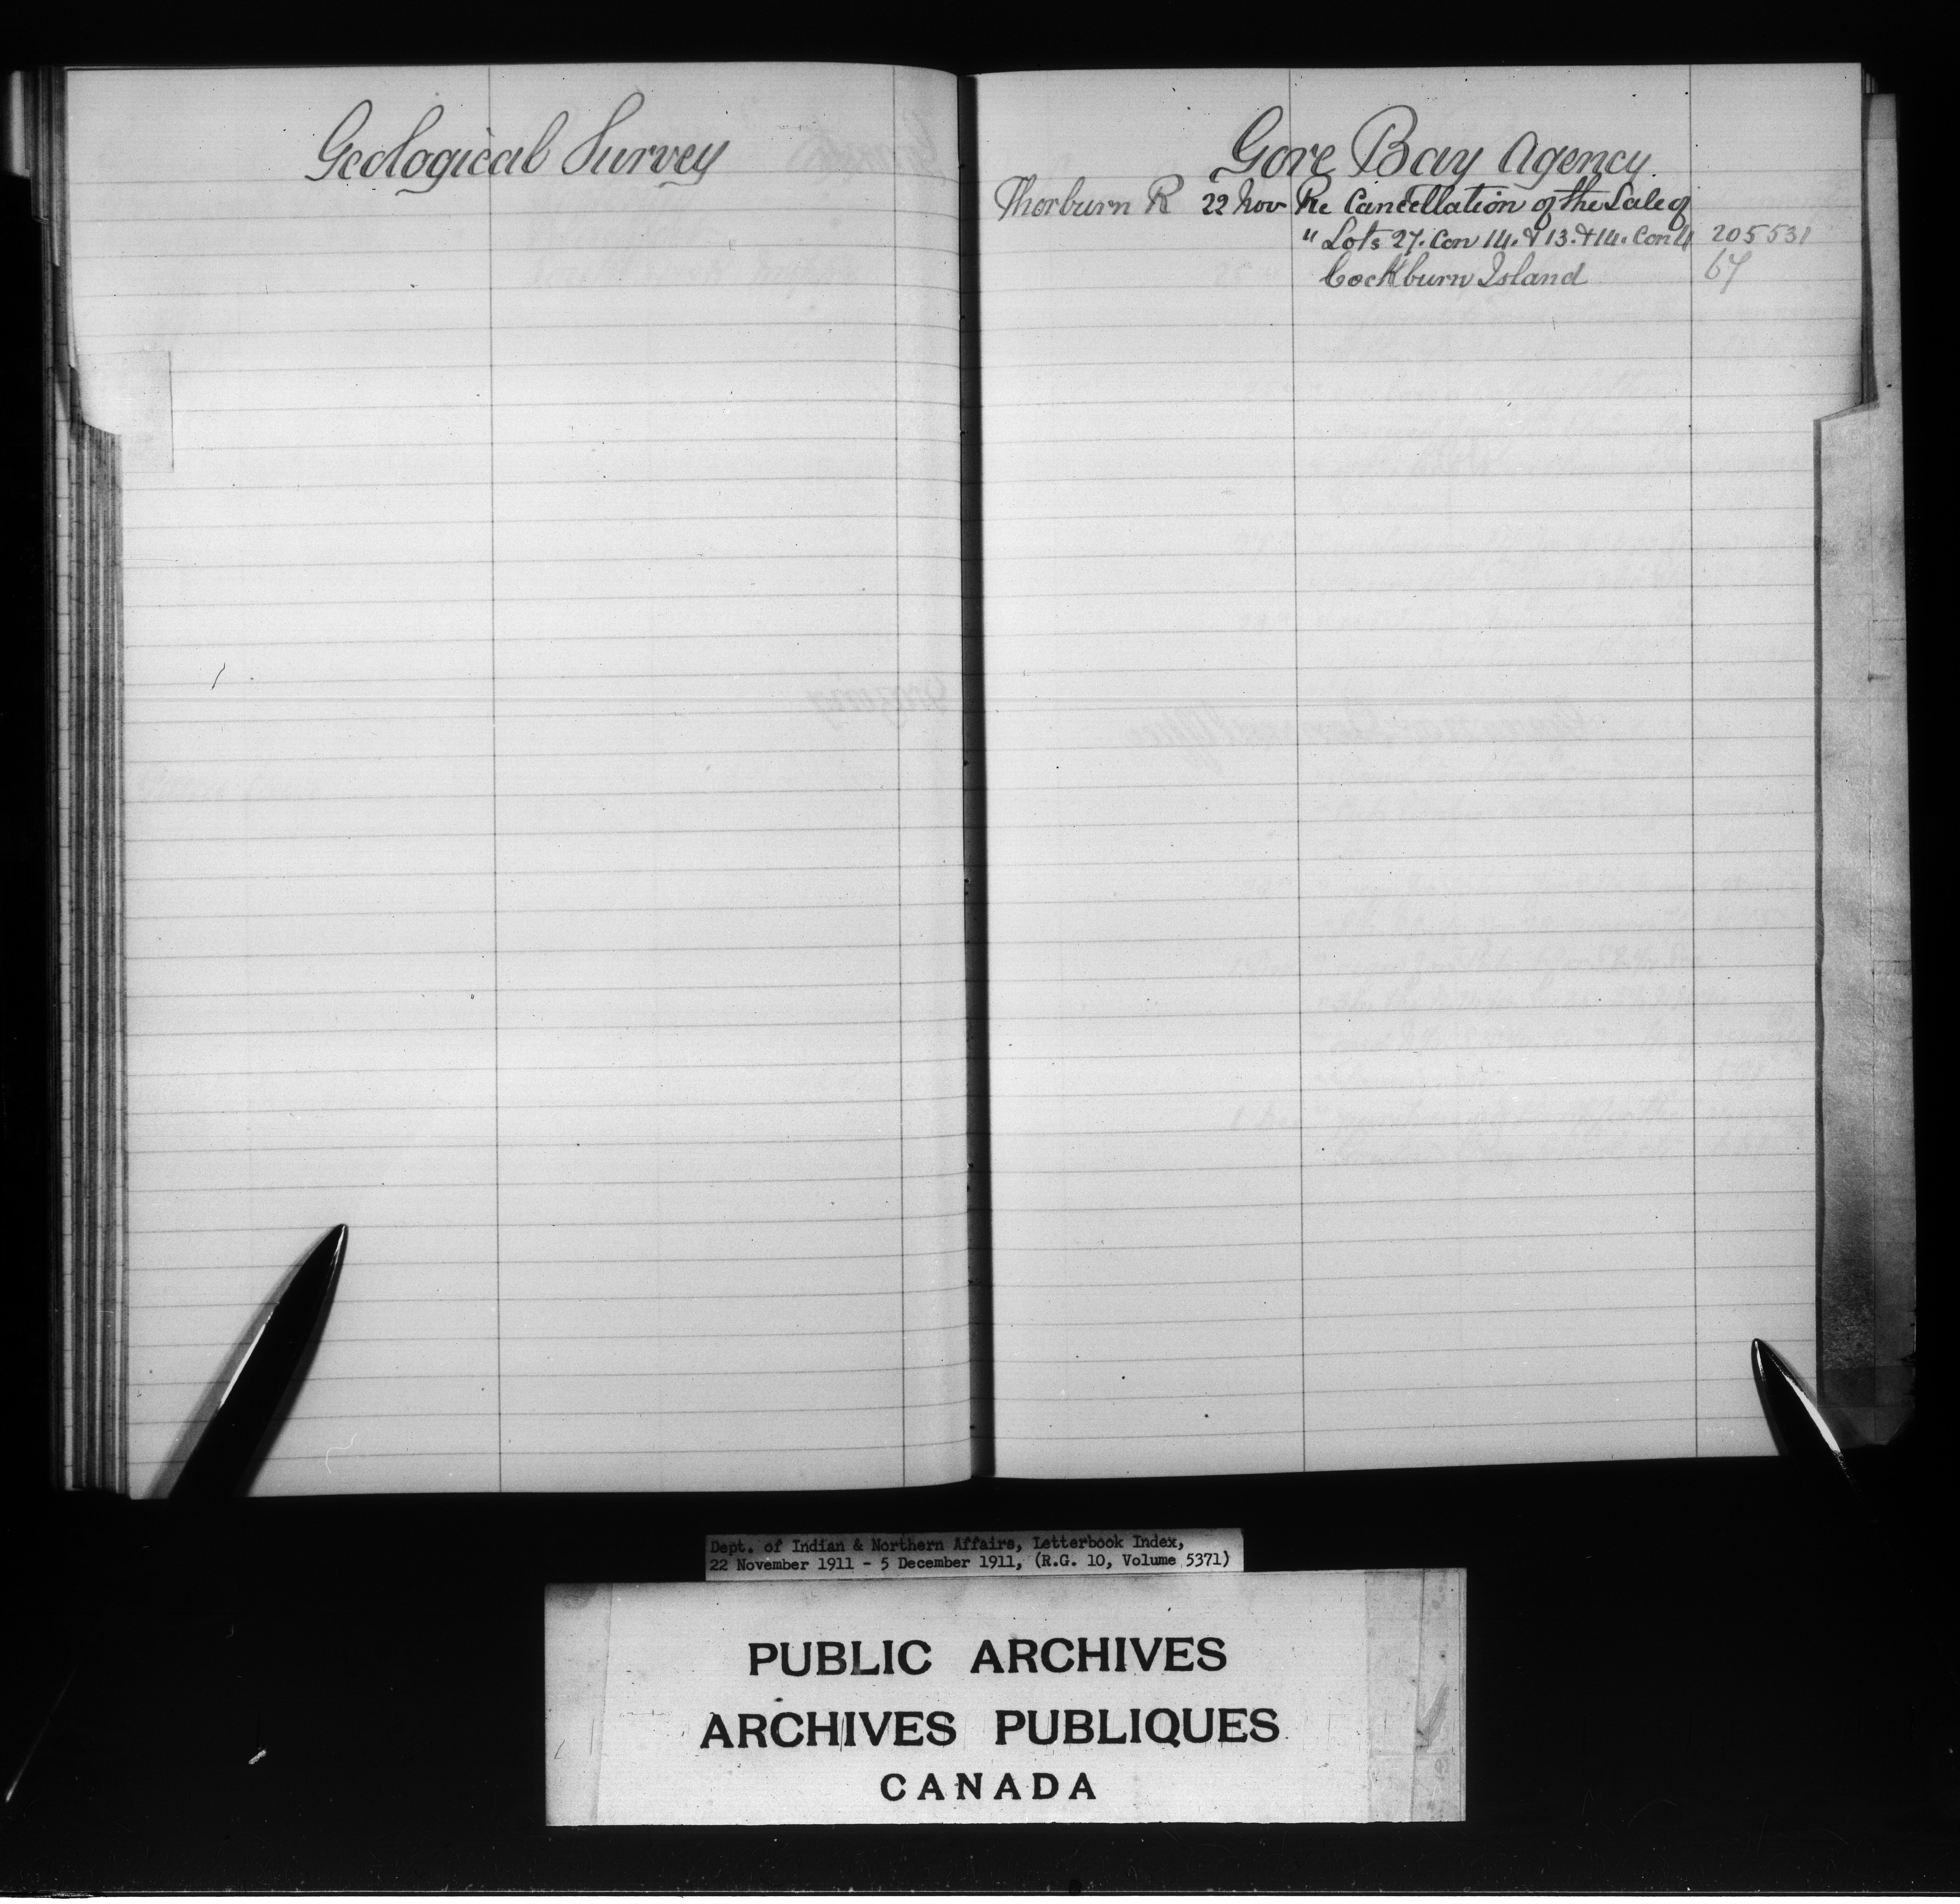 Geological Survey
Gore Bay Agency
Thorburn R 22 Nov Re Cancellation of the Sale of
" Lots 27. Con 14. & 13. & 14. Con 4 205531
Cockburn Island 67
Dept. of Indian & Northern Affairs, Letterbook Index,
22 November 1911 - 5 December 1911, (R.G. 10, Volume 5371)
PUBLIC ARCHIVES
ARCHIVES PUBLIQUES
CANADA